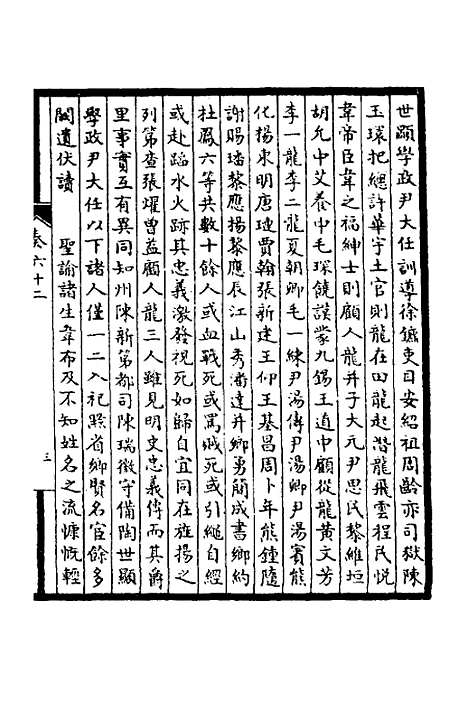 世顯學政尹大任訓導徐鑣吏目安紹祖周齡亦司獄陳
玉環把總許華宇土官則龍在田龍起潛龍飛雲程民悅
韋帝臣韋之福紳士則顧人龍并子大元尹思民黎維垣
胡允中艾養中毛琛饒謨蒙九錫王道中顧從龍黃文芳
李一龍李二龍夏朝卿毛一練尹湯傳尹湯卿尹湯賓熊
化楊永明唐璉賈翰張新建王仰王基昌周卜年熊鍾隨
謝賜璠黎應揚黎應辰江山秀潘達并鄉勇簡成書鄉約
杜鳳六等共數十餘人或血戰死或罵賊死或引繩自經
或赴蹈水火跡其忠義激發視死如歸自宜同在旌揚之
列第查張燿曾益顧人龍三人雖見明史忠義傳而其爵
里事實互有異同知州陳新第都司陳瑞徵守備陶世顯
學政尹大任以下諸人僅一二入祀黔省鄉賢名宦餘多
闕遺伏讀　聖諭諸生韋布及不知姓名之流慷慨輕
卷六十二
三